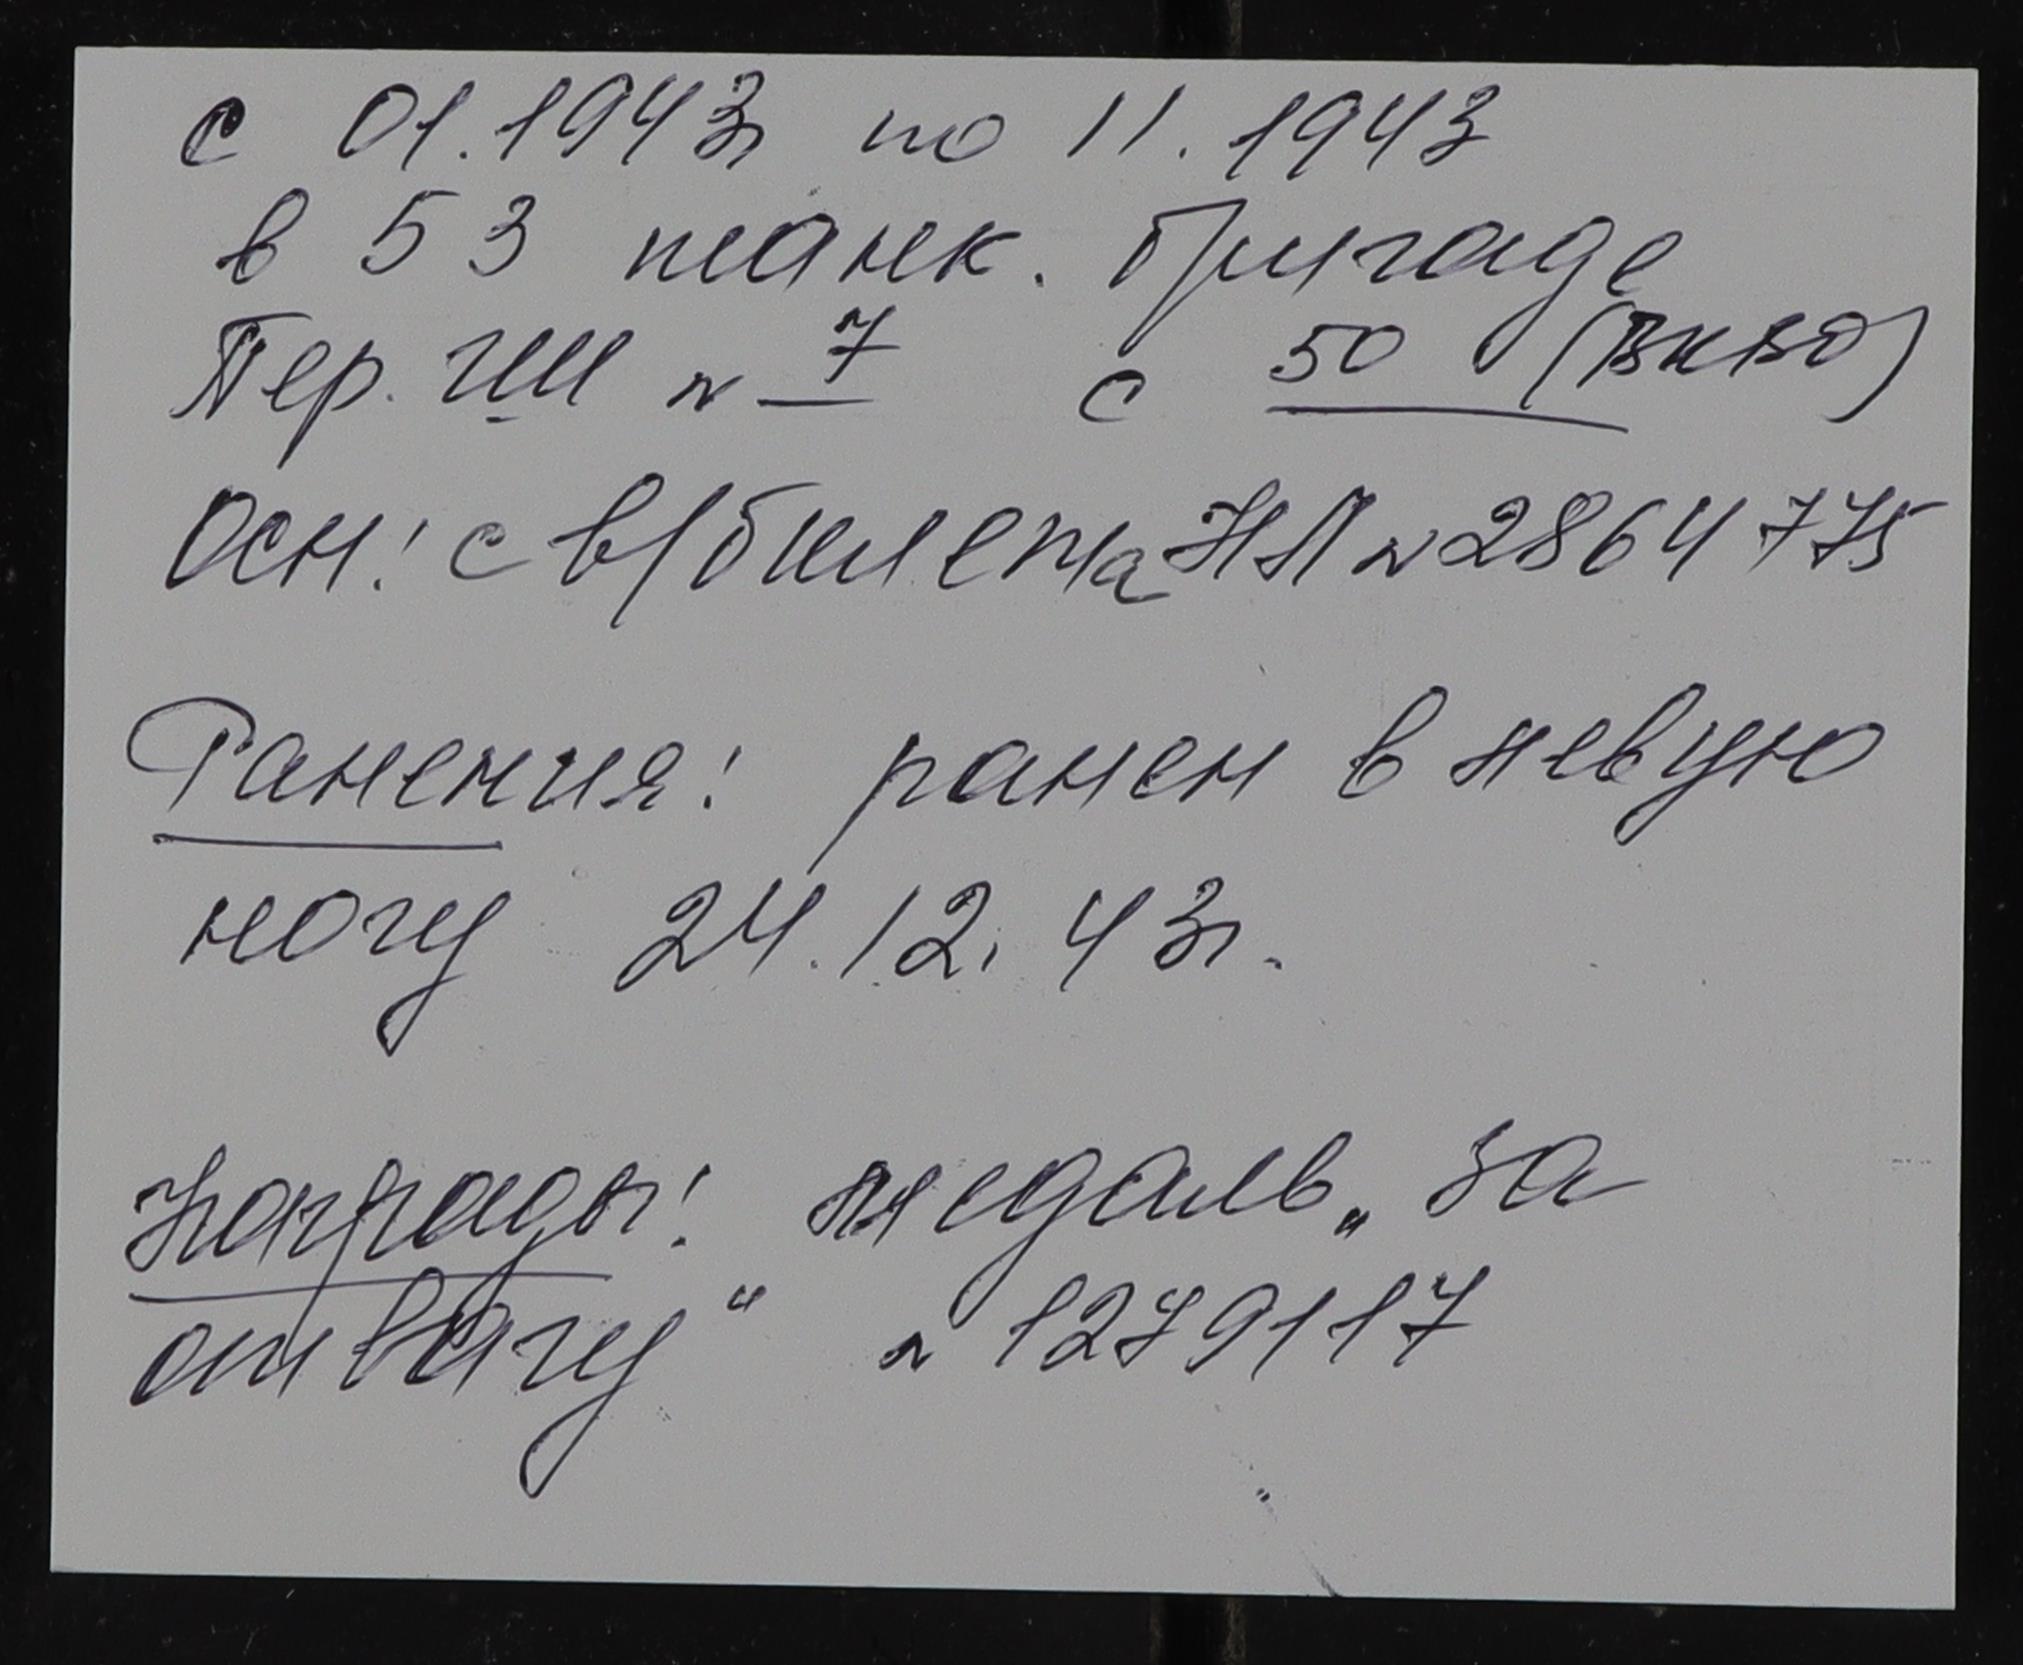 с 01.1943г по 11.1943
в 53 танк. бригаде
Пер. ГШ № 7 с 50 (ВКВО)
Осн: с в/билета НЛ № 2864775
Ранения: ранен в левую
ногу 24.12.43г.
Награды: медаль „За
отвагу“ № 1279117